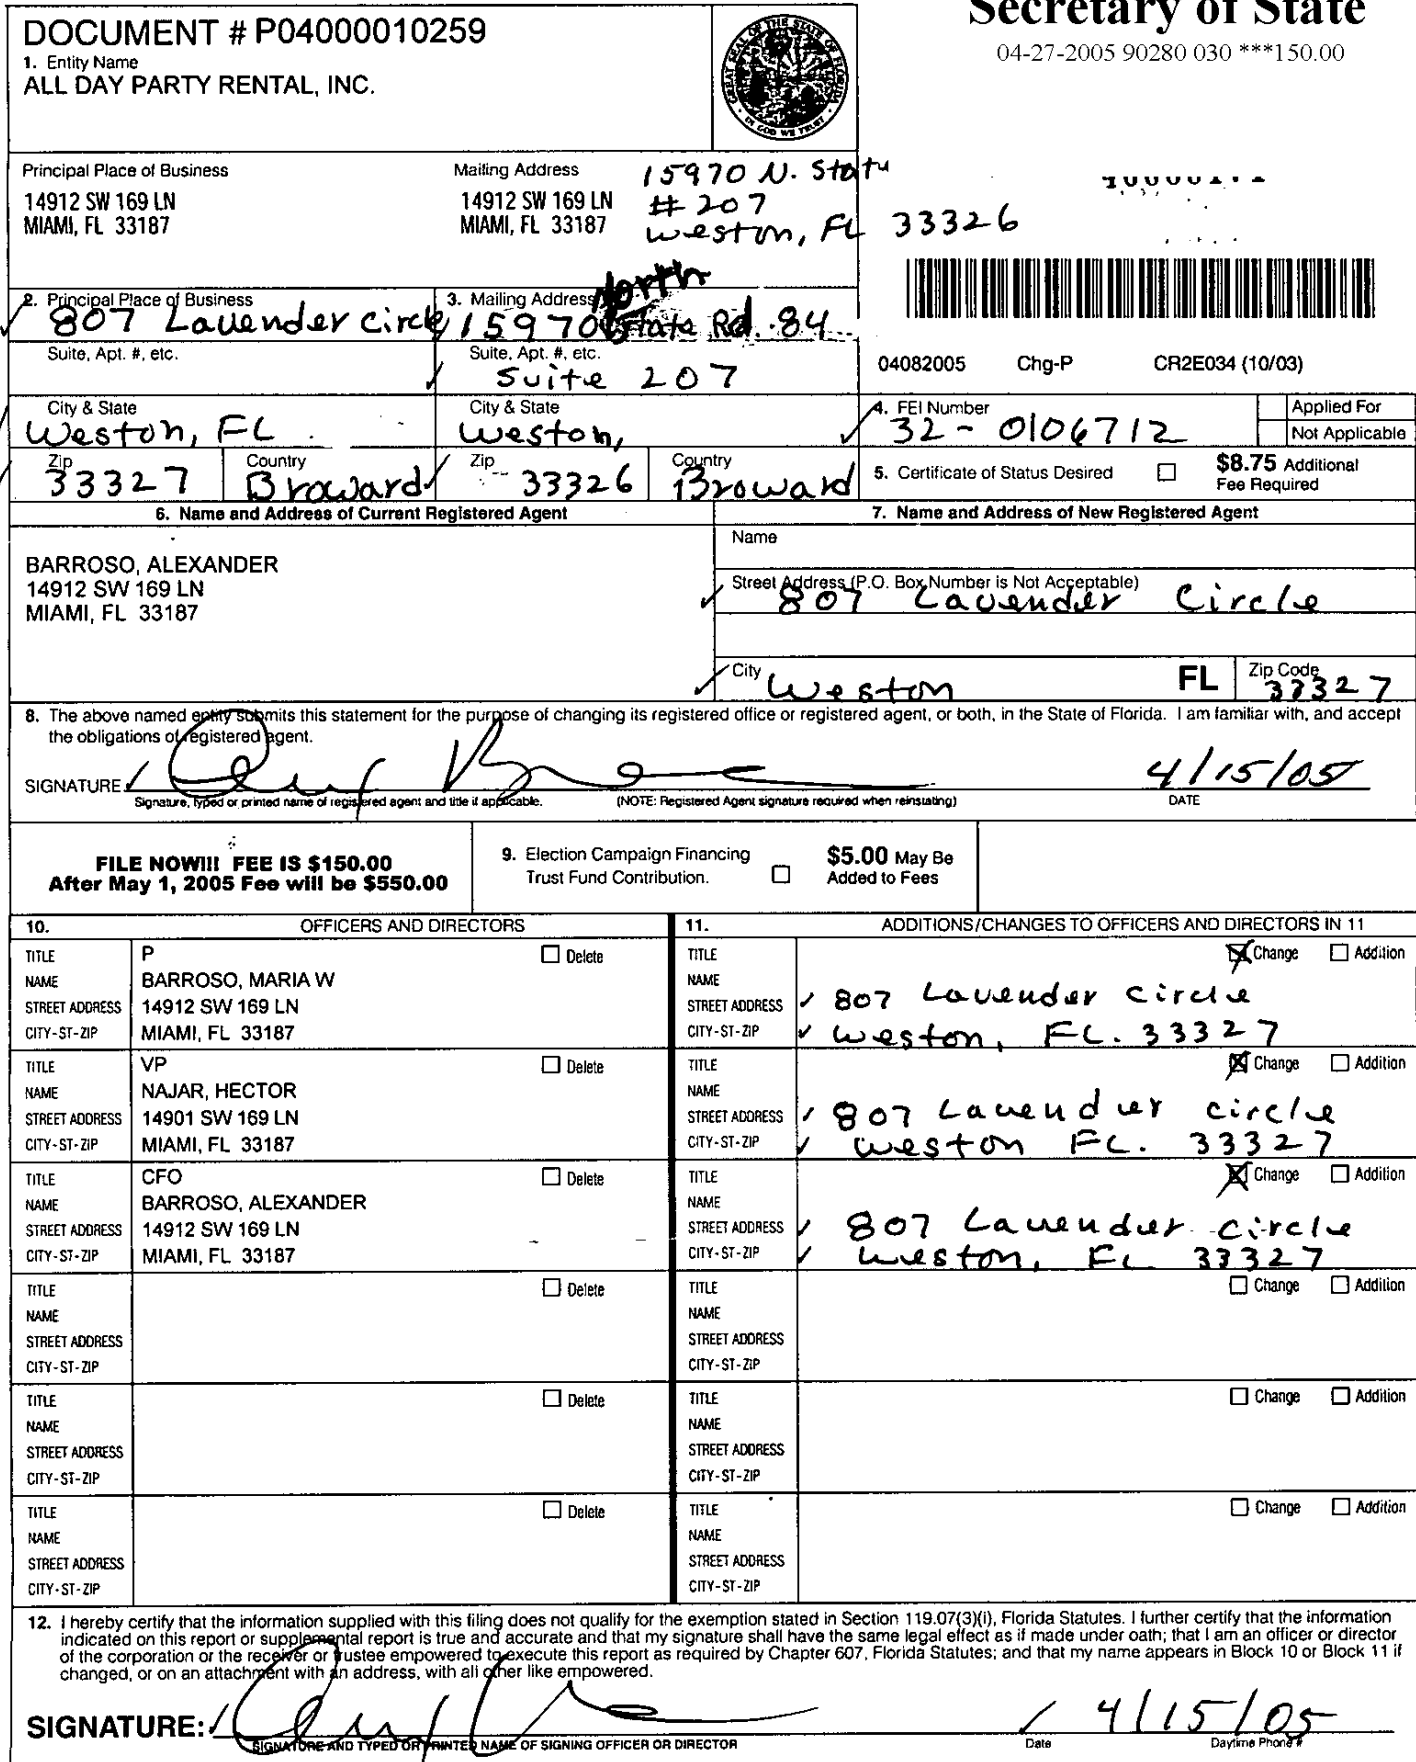 Secretary of State
04-27-2005 90280 030 ***150.00
DOCUMENT # P04000010259
1. Entity Name
ALL DAY PARTY RENTAL, INC.
GREAT SEAL OF THE STATE OF FLORIDA
IN GOD WE TRUST
Principal Place of Business
14912 SW 169 LN
MIAMI, FL 33187
Mailing Address
14912 SW 169 LN
MIAMI, FL 33187
15970 N. State
# 207
Weston, FL 33326
2. Principal Place of Business
807 Lavender Circle
3. Mailing Address
15970 North State Rd. 84
Suite, Apt. #, etc.
Suite, Apt. #, etc.
Suite 207
04082005 Chg-P CR2E034 (10/03)
City & State
Weston, FL
City & State
Weston,
4. FEI Number
32-0106712
Applied For
Not Applicable
Zip
33327
Country
Broward
Zip
33326
Country
Broward
5. Certificate of Status Desired
$8.75 Additional
Fee Required
6. Name and Address of Current Registered Agent
BARROSO, ALEXANDER
14912 SW 169 LN
MIAMI, FL 33187
7. Name and Address of New Registered Agent
Name
Street Address (P.O. Box Number is Not Acceptable)
807 Lavender Circle
City
Weston
FL
Zip Code
33327
8. The above named entity submits this statement for the purpose of changing its registered office or registered agent, or both, in the State of Florida. I am familiar with, and accept
the obligations of registered agent.
SIGNATURE
4/15/05
Signature, typed or printed name of registered agent and title if applicable.
(NOTE: Registered Agent signature required when reinstating)
DATE
FILE NOW!!! FEE IS $150.00
After May 1, 2005 Fee will be $550.00
9. Election Campaign Financing
Trust Fund Contribution.
$5.00 May Be
Added to Fees
10. OFFICERS AND DIRECTORS
TITLE P Delete
NAME BARROSO, MARIA W
STREET ADDRESS 14912 SW 169 LN
CITY-ST-ZIP MIAMI, FL 33187
TITLE VP Delete
NAME NAJAR, HECTOR
STREET ADDRESS 14901 SW 169 LN
CITY-ST-ZIP MIAMI, FL 33187
TITLE CFO Delete
NAME BARROSO, ALEXANDER
STREET ADDRESS 14912 SW 169 LN
CITY-ST-ZIP MIAMI, FL 33187
TITLE Delete
NAME
STREET ADDRESS
CITY-ST-ZIP
TITLE Delete
NAME
STREET ADDRESS
CITY-ST-ZIP
TITLE Delete
NAME
STREET ADDRESS
CITY-ST-ZIP
11. ADDITIONS/CHANGES TO OFFICERS AND DIRECTORS IN 11
TITLE Change Addition
NAME
STREET ADDRESS 807 Lavender Circle
CITY-ST-ZIP Weston, FL. 33327
TITLE Change Addition
NAME
STREET ADDRESS 807 Lavender circle
CITY-ST-ZIP Weston FL. 33327
TITLE Change Addition
NAME
STREET ADDRESS 807 Lavender circle
CITY-ST-ZIP Weston, FL 33327
TITLE Change Addition
NAME
STREET ADDRESS
CITY-ST-ZIP
TITLE Change Addition
NAME
STREET ADDRESS
CITY-ST-ZIP
TITLE Change Addition
NAME
STREET ADDRESS
CITY-ST-ZIP
12. I hereby certify that the information supplied with this filing does not qualify for the exemption stated in Section 119.07(3)(i), Florida Statutes. I further certify that the information
indicated on this report or supplemental report is true and accurate and that my signature shall have the same legal effect as if made under oath; that I am an officer or director
of the corporation or the receiver or trustee empowered to execute this report as required by Chapter 607, Florida Statutes; and that my name appears in Block 10 or Block 11 if
changed, or on an attachment with an address, with all other like empowered.
SIGNATURE:
4/15/05
SIGNATURE AND TYPED OR PRINTED NAME OF SIGNING OFFICER OR DIRECTOR
Date
Daytime Phone #